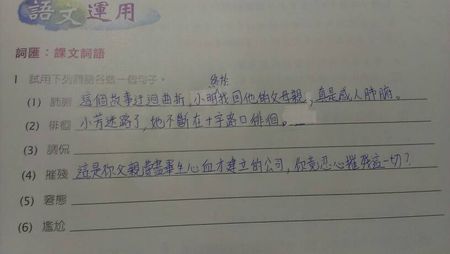 語文運用
詞匯：課文詞語
1 試用下列詞語各造一個句子。
終於
(1) 肺腑 這個故事迂迴曲折，小明找回他的父母親，真是感人肺腑。
(2) 徘徊 小芳迷路了，她不斷在十字路口徘徊。
(3) 調侃
(4) 摧殘 這是你父親耗盡畢生心血才建立的公司，你竟忍心摧殘這一切？
(5) 窘態
(6) 尷尬